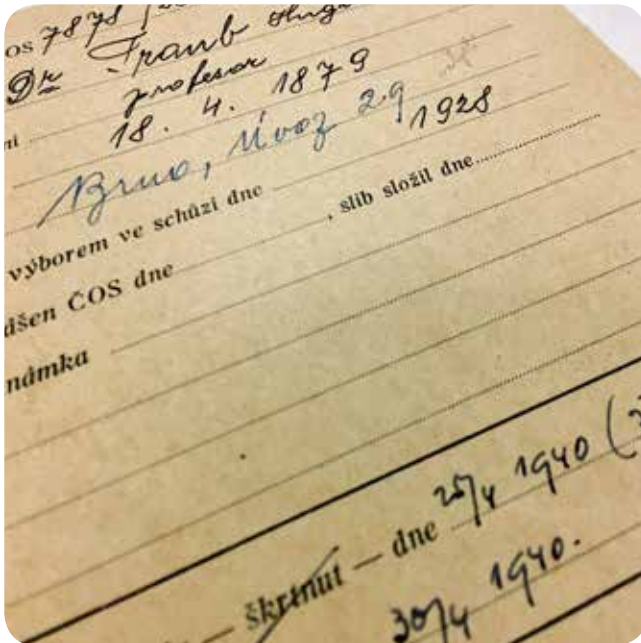 os 7878
Dr Traub Hugo
ní profesor
18. 4. 1879
Brno, Úvoz 29
výborem ve schůzi dne 1928
dšen ČOS dne , slib složil dne
námka
škrtnut — dne 25/4 1940 (
30/4 1940.